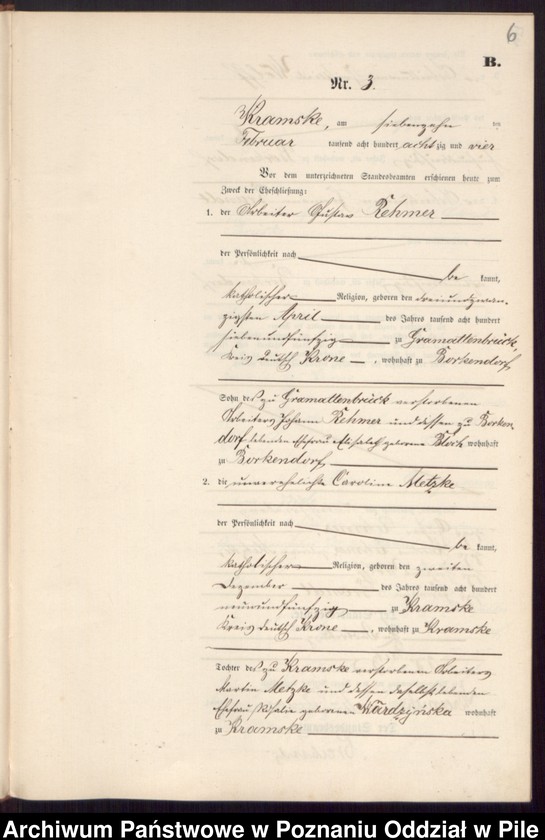 6
B.
Nr. 3.
Kramske, am siebenzehn ten
Februar tausend acht hundert achtzig und vier
Vor dem unterzeichneten Standesbeamten erschienen heute zum
Zweck der Eheschließung:
1. der Arbeiter Gustav Rehmer
der Persönlichkeit nach
be kannt,
katholischer Religion, geboren den dreiundzwan-
zigsten April des Jahres tausend acht hundert
siebenundfünfzig zu Gramattenbrück,
Kreis Deutsch Krone, wohnhaft zu Borkendorf,
Sohn des zu Gramattenbrück verstorbenen
Arbeiters Johann Rehmer und dessen zu Borken
dorf lebenden Ehefrau Elisabeth geborene wohnhaft
zu Borkendorf,
2. die unverehelichte Caroline Metzke
der Persönlichkeit nach
be kannt,
katholischer Religion, geboren den zweiten
Dezember des Jahres tausend acht hundert
neunundfünfzig zu Kramske
Kreis Deutsch Krone, wohnhaft zu Kramske
Tochter des zu Kramske verstorbenen Arbeiters
Martin Metzke und dessen daselbst lebenden
Ehefrau Rosalie geborenen Wardzyńska wohnhaft
zu Kramske
Archiwum Państwowe w Poznaniu Oddział w Pile